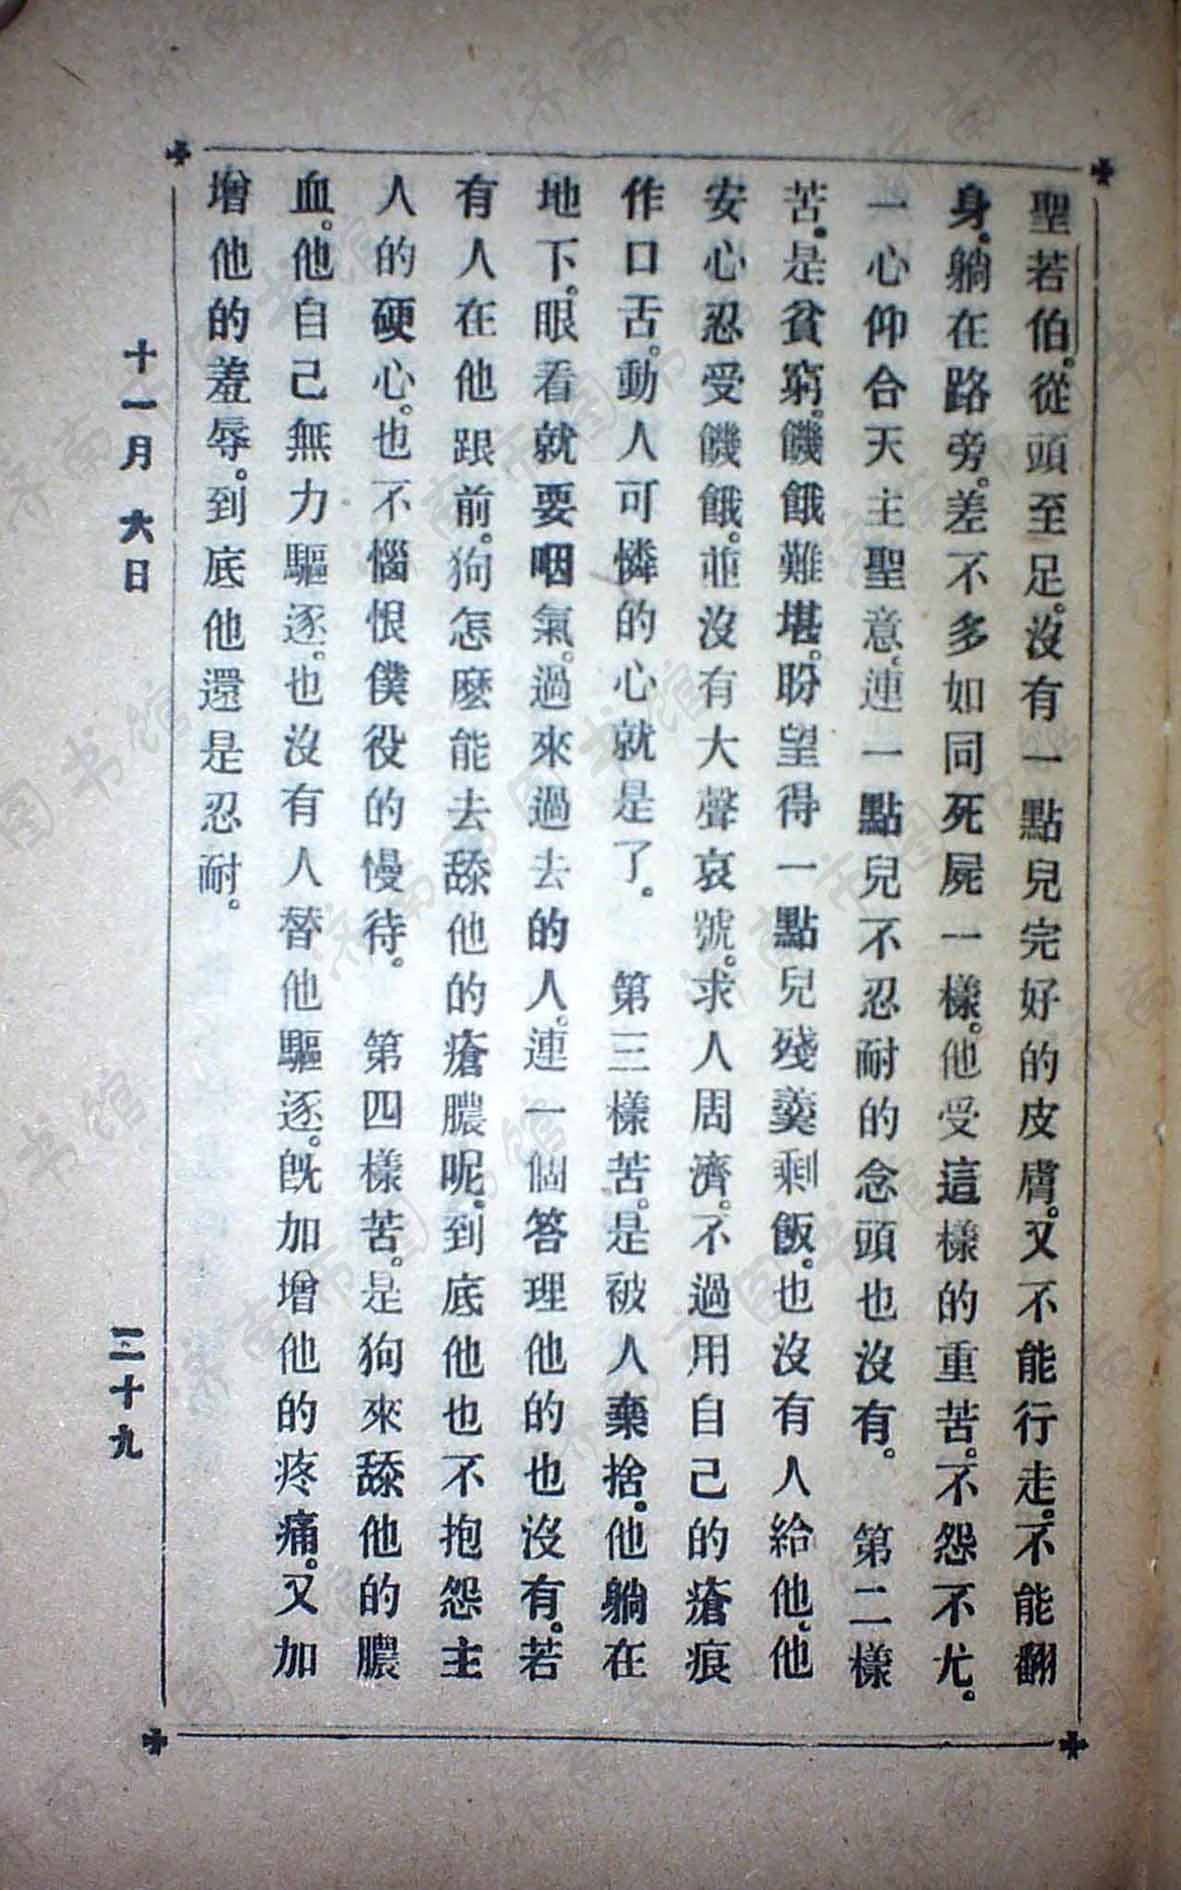 聖若伯。從頭至足。沒有一點兒完好的皮膚。又不能行走。不能翻
身。躺在路旁。差不多如同死屍一樣。他受這樣的重苦。不怨不尤。
一心仰合天主聖意。連一點兒不忍耐的念頭也沒有。　第二樣
苦。是貧窮。饑餓難堪。盼望得一點兒殘羹剩飯。也沒有人給他、他
安心忍受饑餓。並沒有大聲哀號。求人周濟。不過用自己的瘡痕
作口舌。動人可憐的心就是了。　第三樣苦。是被人棄捨。他躺在
地下。眼看就要咽氣。過來過去的人。連一個答理他的也沒有。若
有人在他跟前。狗怎麼能去舔他的瘡膿呢。到底他也不抱怨主
人的硬心。也不惱恨僕役的慢待。　第四樣苦。是狗來舔他的膿
血。他自己無力驅逐。也沒有人替他驅逐。旣加增他的疼痛。又加
增他的羞辱。到底他還是忍耐。
十一月　六日　三十九
济南市图书馆